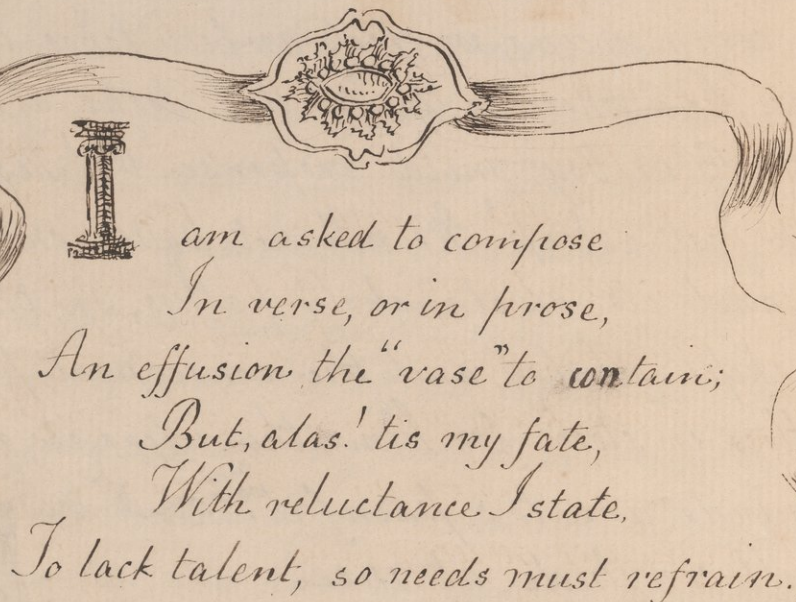 I am asked to compose
In verse, or in prose,
An effusion the "vase" to contain;
But, alas! tis my fate,
With reluctance I state,
To lack talent, so needs must refrain.